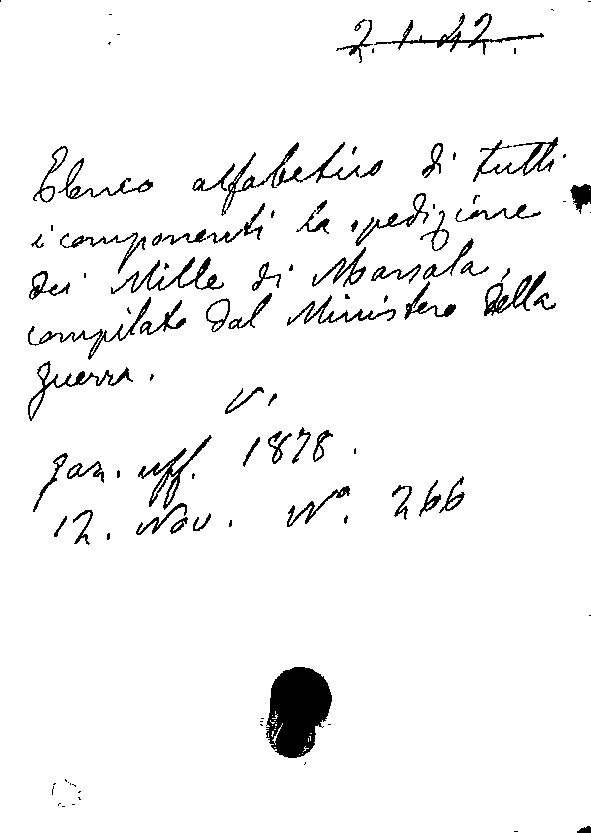 2.1.42.
Elenco alfabetico di tutti
i componenti la spedizione
dei Mille di Marsala,
compilato dal Ministero della
guerra.
V.
gaz. uff. 1878.
12. Nov. Nº. 266